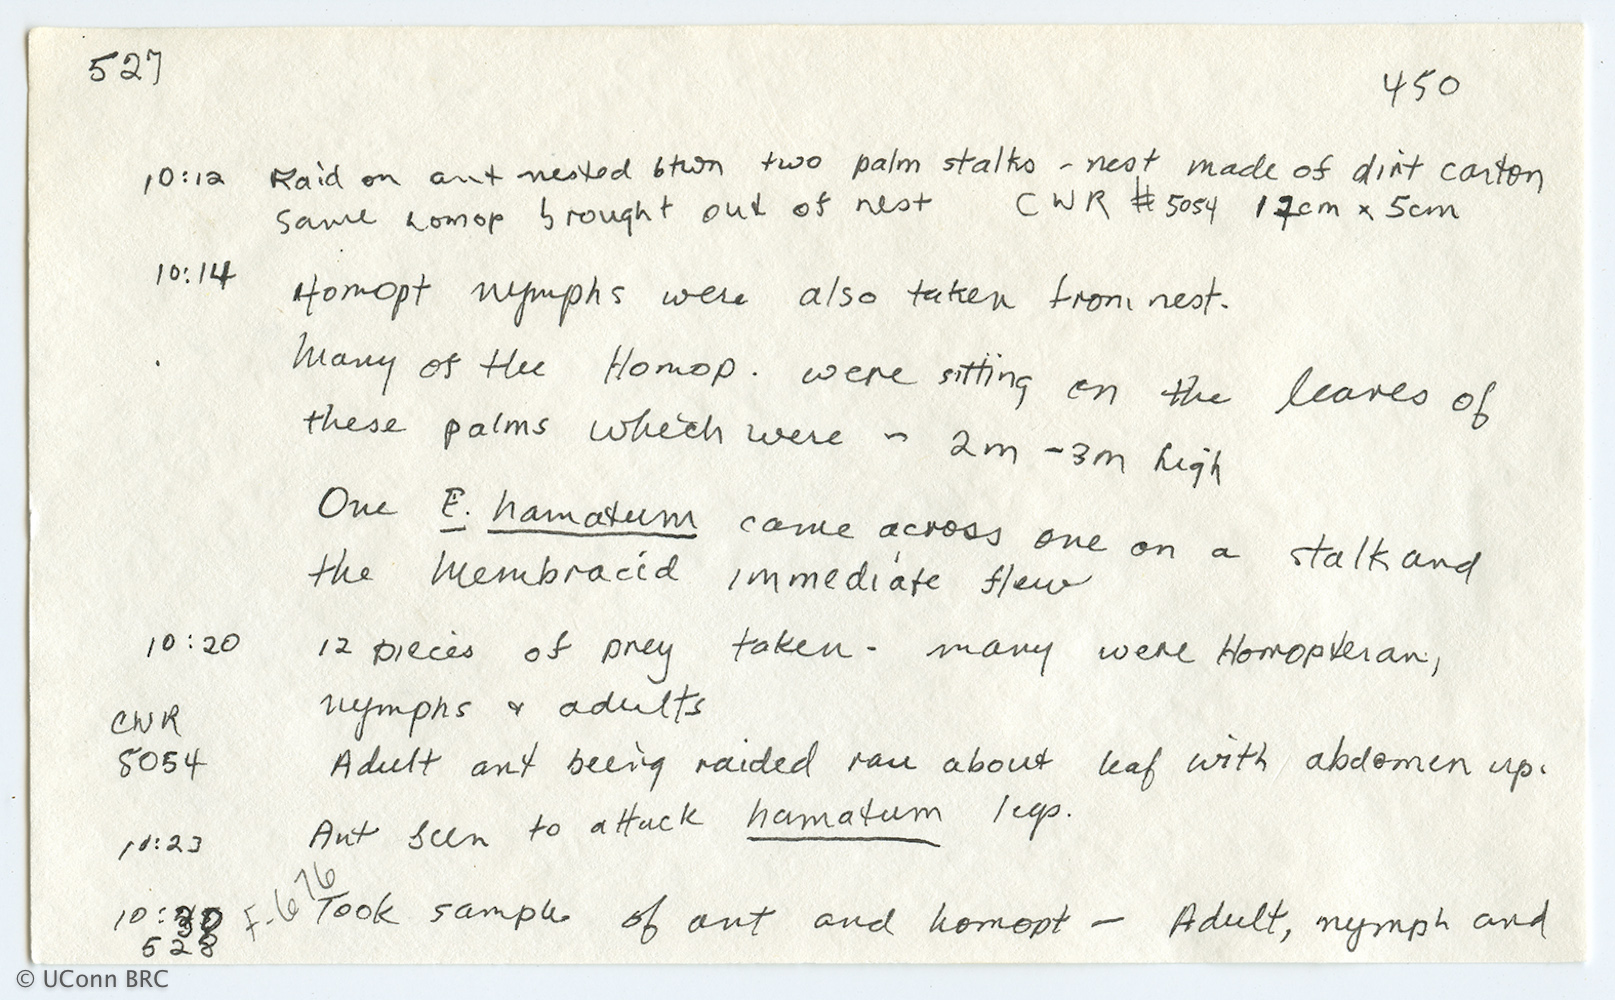 527
450
10:12 Raid on ant nested btwn two palm stalks - nest made of dirt carton
same homop brought out of nest CWR #5054 12cm x 5cm
10:14 Homopt nymphs were also taken from nest.
Many of the Homop. were sitting on the leaves of
these palms which were ~ 2m - 3m high
One E. hamatum came across one on a stalk and
the Membracid immediate flew
10:20 12 pieces of prey taken - many were Homopteran,
nymphs & adults
CWR
5054 Adult ant being raided ran about leaf with abdomen up.
10:23 Ant seen to attack hamatum legs.
10:30 F-676 Took sample of ant and homopt - Adult, nymph and
528
© UConn BRC